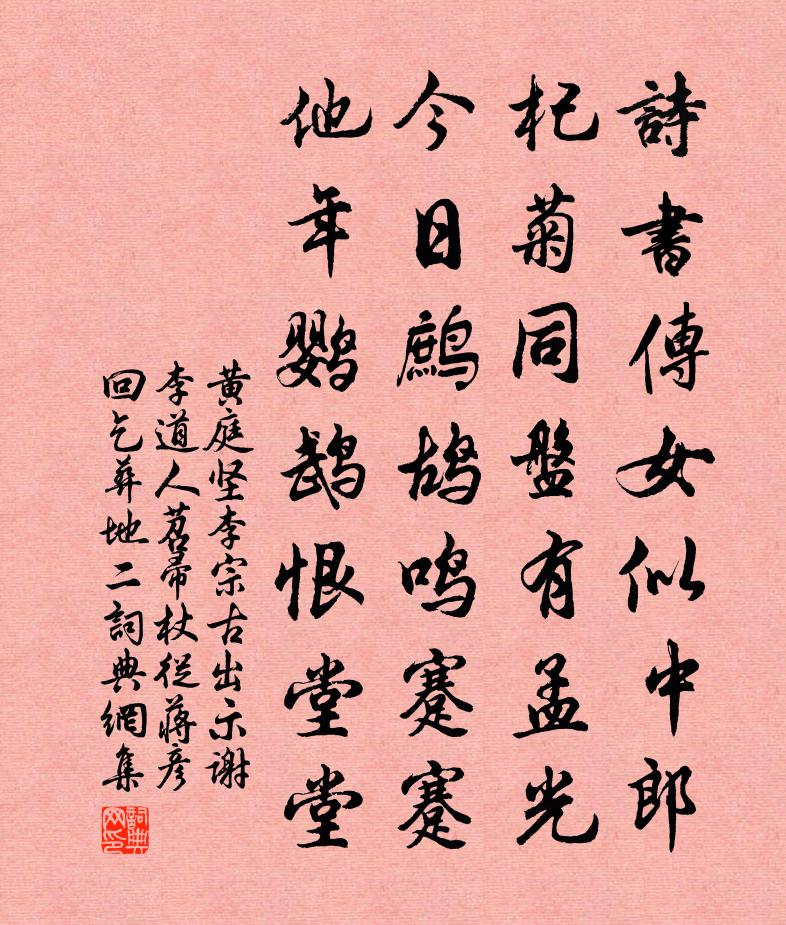 詩書傳女似中郎
杞菊同盤有孟光
今日鷓鸪鸣蹇蹇
他年鹦鹉恨堂堂
黄庭坚李宗古出示谢
李道人苕帚杖從蔣彦
回乞葬地二詞典網集
詞典
网印